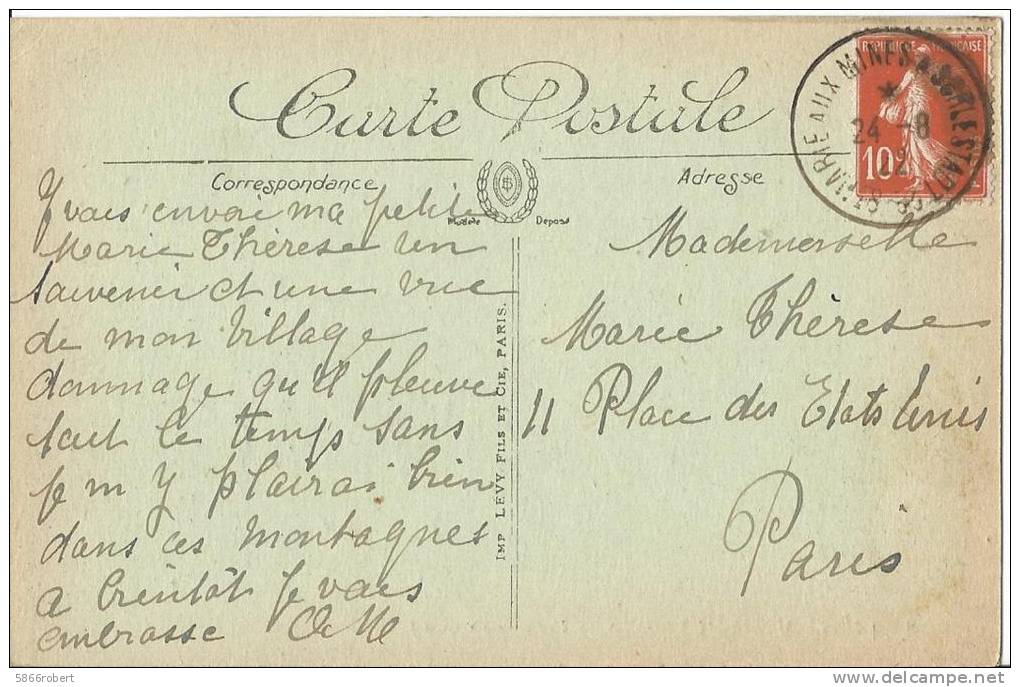 Carte Postale
RÉPUBLIQUE FRANÇAISE
10
STE MARIE AUX MINES A SCHLESTADT
24 -8
Correspondance
Adresse
Modèle Déposé
Je vais envoi ma petite
Marie Thérèse un
souvenir et une vue
de mon village
dommage qu'il pleuve
tout le temps sans
je m y plairai bien
dans ces montagnes
a bientôt Je vais
embrasse
IMP LEVY FILS ET CIE, PARIS.
Mademoiselle
Marie Thérèse
11 Place des Etats Unis
Paris
5866robert